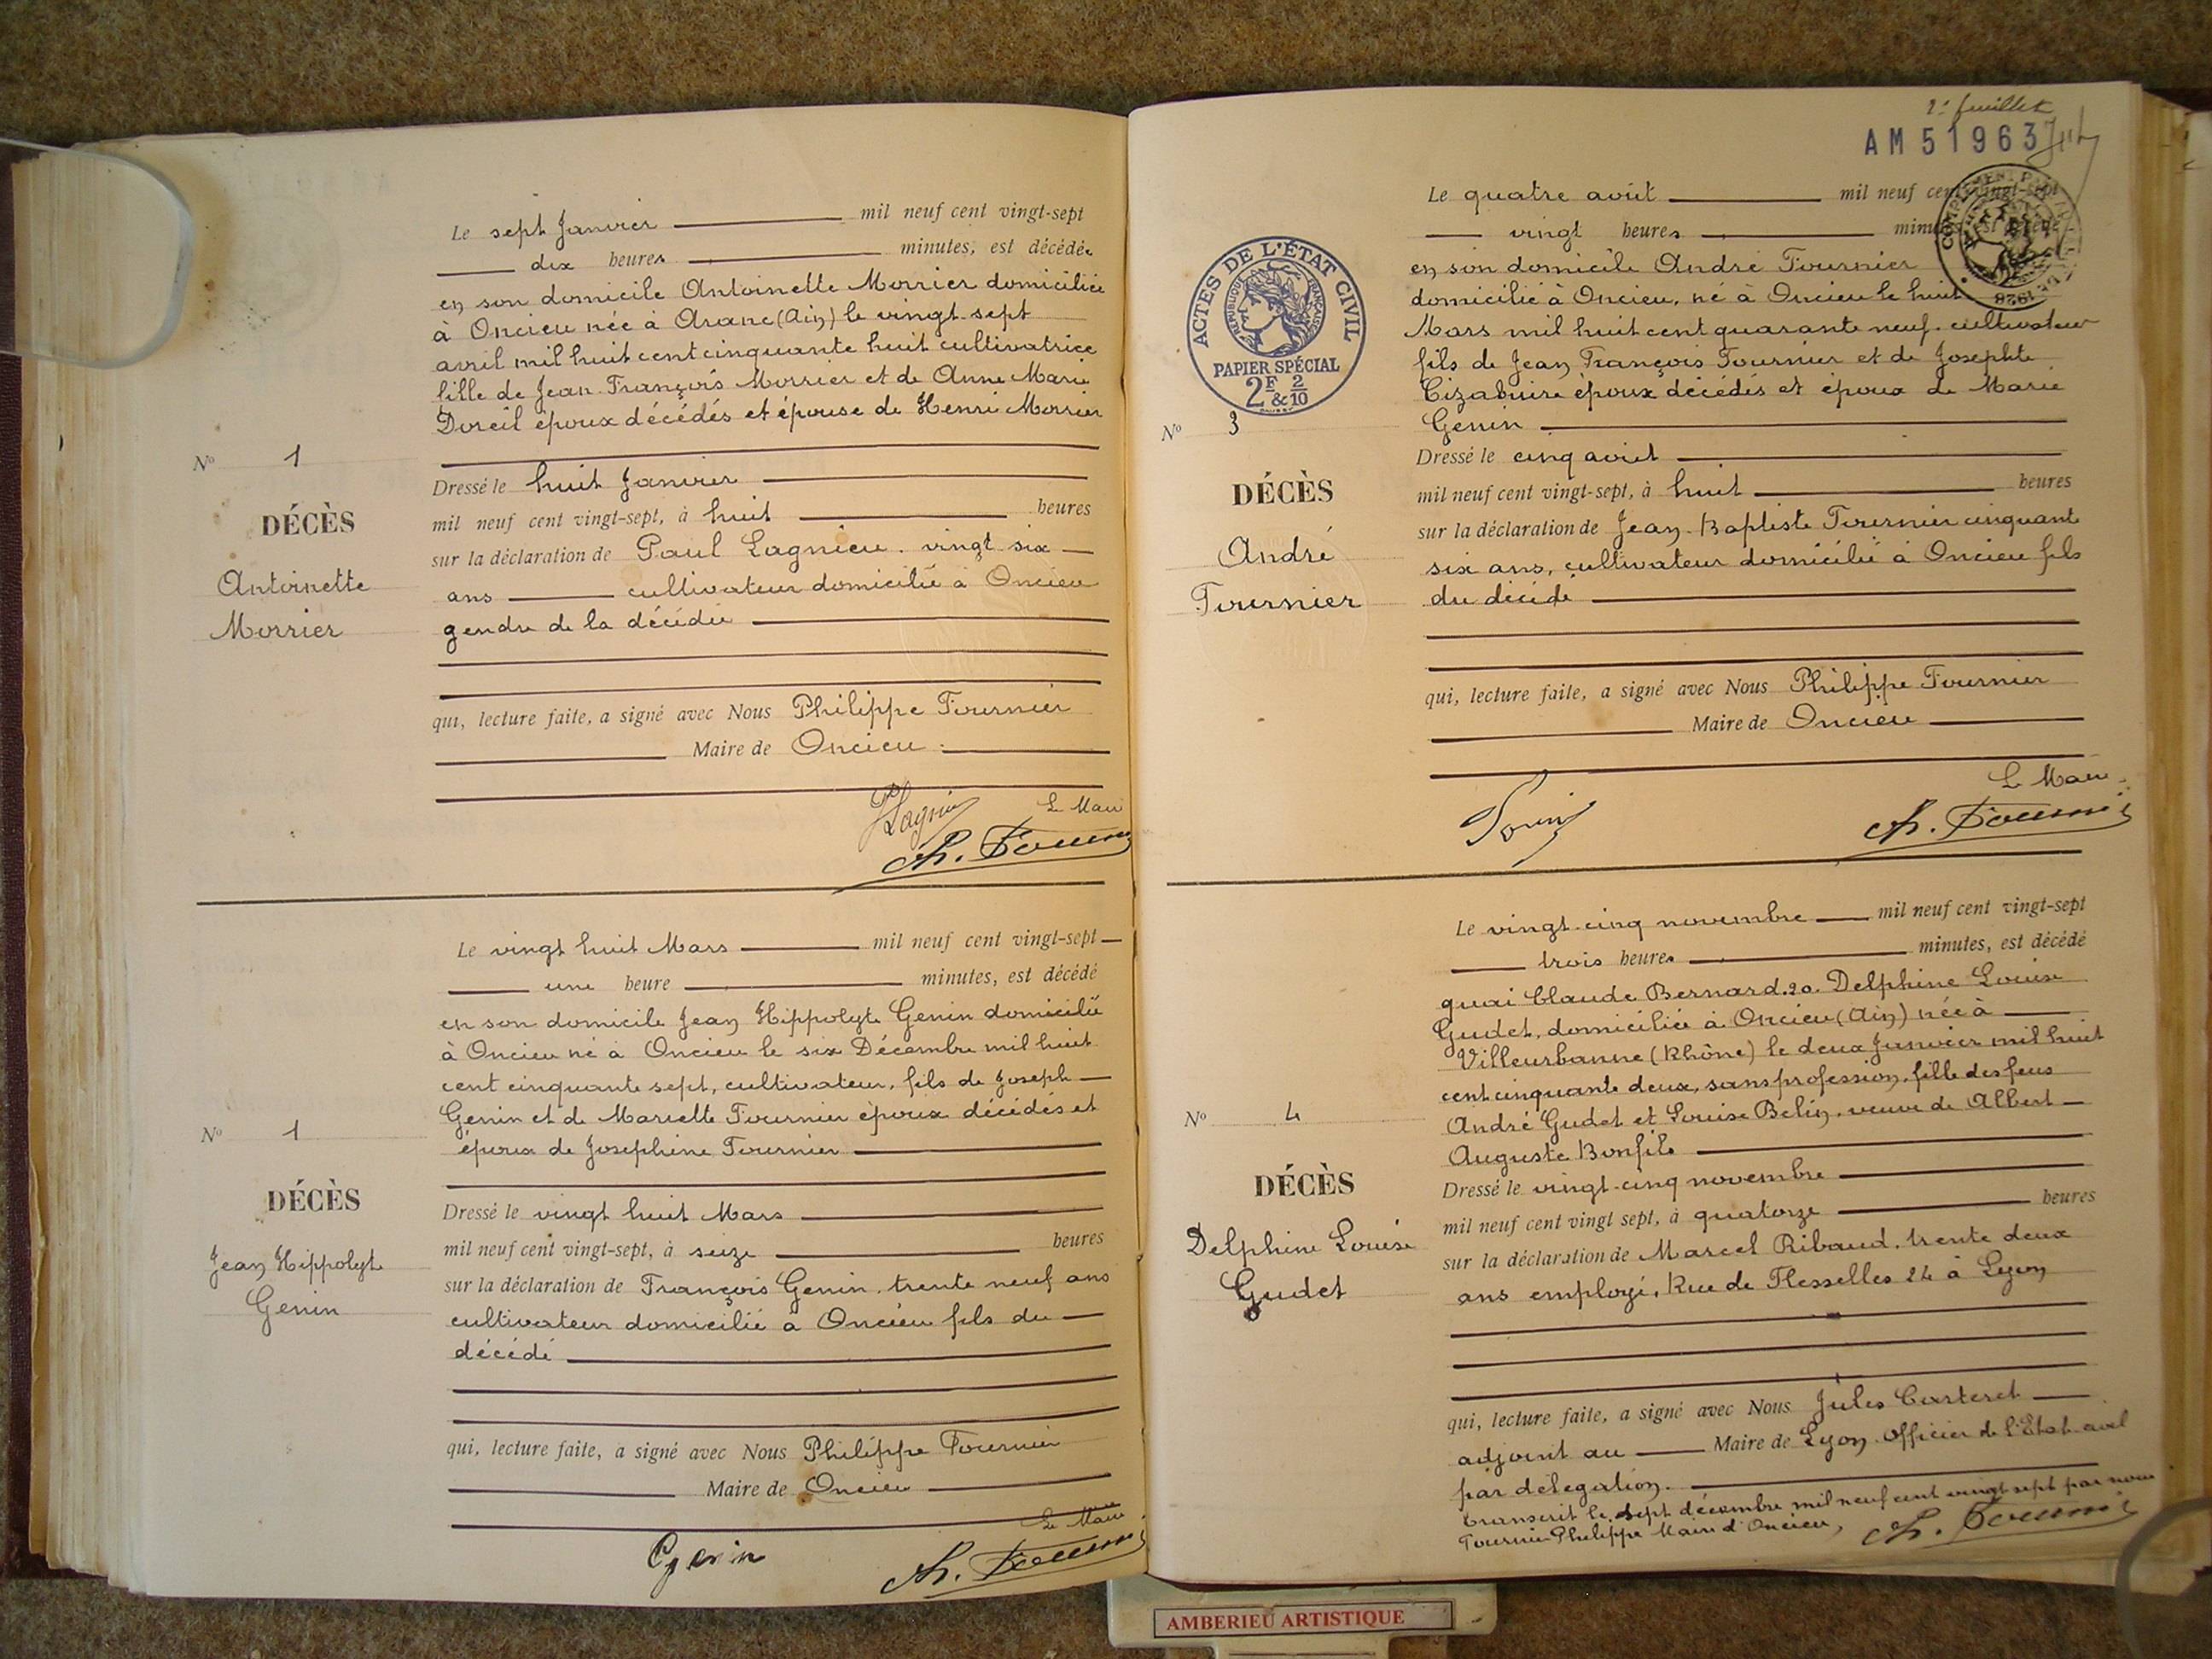 Le sept Janvier mil neuf cent vingt-sept
dix heures minutes, est décédée
en son domicile Antoinette Morrier domiciliée
à Oncieu née à Aranc (Ain) le vingt sept
avril mil huit cent cinquante huit cultivatrice
fille de Jean François Morrier et de Anne Marie
Doreil époux décédés et épouse de Henri Morrier
No 1
DÉCÈS
Antoinette
Morrier
Dressé le huit Janvier
mil neuf cent vingt-sept, à huit heures
sur la déclaration de Paul Lagnieu. vingt six
ans cultivateur domicilié à Oncieu
gendre de la décédée
qui, lecture faite, a signé avec Nous Philippe Fournier
Maire de Oncieu
Le Maire
Ph. Fournier
Le vingt huit Mars mil neuf cent vingt-sept
une heure minutes, est décédé
en son domicile Jean Hippolyte Genin domicilié
à Oncieu né à Oncieu le six Décembre mil huit
cent cinquante sept, cultivateur, fils de Joseph
Genin et de Mariette Fournier époux décédés et
époux de Josephine Fournier
No 1
DÉCÈS
Jean Hippolyte
Genin
Dressé le vingt huit Mars
mil neuf cent vingt-sept, à seize heures
sur la déclaration de François Genin, trente neuf ans
cultivateur domicilié à Oncieu fils du
décédé
qui, lecture faite, a signé avec Nous Philippe Fournier
Maire de Oncieu
Le Maire
Genin
Ph. Fournier
2e feuillet
AM 51963
Le quatre août mil neuf cent vingt-sept
vingt heures minutes, est décédé
en son domicile André Fournier
domicilié à Oncieu, né à Oncieu le huit
Mars mil huit cent quarante neuf. cultivateur
fils de Jean François Fournier et de Josephte
Cizabuire époux décédés et époux de Marie
Genin
ACTES DE L'ÉTAT CIVIL
RÉPUBLIQUE FRANÇAISE
PAPIER SPÉCIAL
2F & 2/10
No 3
DÉCÈS
André
Fournier
Dressé le cinq août
mil neuf cent vingt-sept, à huit heures
sur la déclaration de Jean-Baptiste Fournier cinquante
six ans, cultivateur domicilié à Oncieu fils
du décédé
qui, lecture faite, a signé avec Nous Philippe Fournier
Maire de Oncieu
Le Maire
Ph. Fournier
Le vingt-cinq novembre mil neuf cent vingt-sept
trois heures minutes, est décédé
quai Claude Bernard. 20. Delphine Louise
Gudet, domiciliée à Oncieu (Ain) née à
Villeurbanne (Rhône) le deux Janvier mil huit
cent cinquante deux, sans profession, fille des feus
André Gudet et Louise Belin, veuve de Albert
Auguste Bonfils
No 4
DÉCÈS
Delphine Louise
Gudet
Dressé le vingt-cinq novembre
mil neuf cent vingt sept, à quatorze heures
sur la déclaration de Marcel Ribaud, trente deux
ans employé, Rue de Flesselles 24 à Lyon
qui, lecture faite, a signé avec Nous Jules Carteret
adjoint au Maire de Lyon. Officier de l'Etat-civil
par délégation.
transcrit le sept décembre mil neuf cent vingt sept par nous
Fournier Philippe Maire d'Oncieu,
Ph. Fournier
AMBERIEU ARTISTIQUE